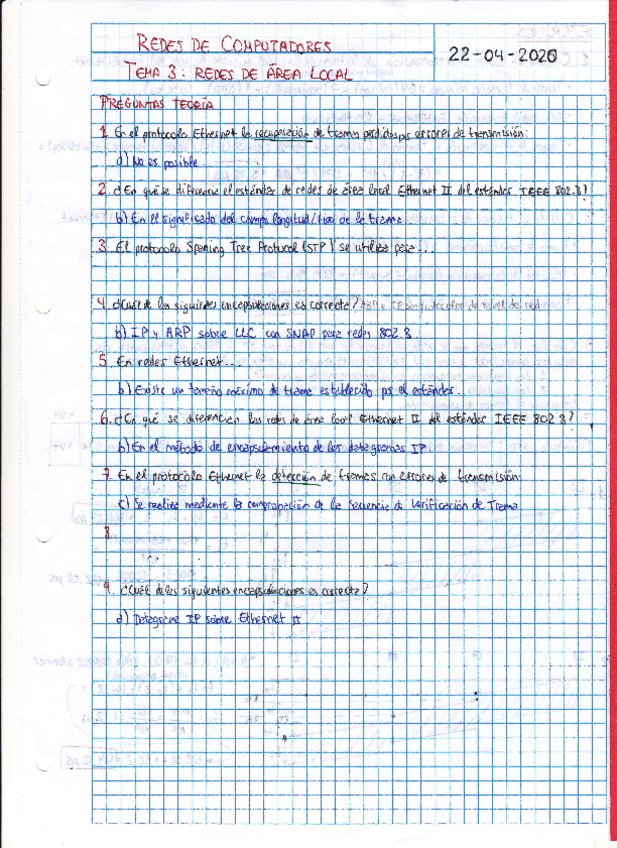 REDES DE COMPUTADORES
22-04-2020
TEMA 3: REDES DE ÁREA LOCAL
PREGUNTAS TEORÍA
1. En el protocolo Ethernet la recuperación de tramas perdidas por errores de transmisión:
d) No es posible.
2. ¿En qué se diferencia el estándar de redes de área local Ethernet II del estándar IEEE 802.3?
b) En el significado del campo longitud/tipo de la trama.
3. El protocolo Spaning Tree Protocol (STP) se utiliza para...
4. ¿Cuál de las siguientes encapsulaciones es correcta?
b) IP y ARP sobre LLC con SNAP para redes 802.3.
5. En redes Ethernet...
b) Existe un tamaño máximo de trama establecido por el estándar.
6. ¿En qué se diferencian las redes de área local Ethernet II del estándar IEEE 802.3?
b) En el método de encapsulamiento de los datagramas IP.
7. En el protocolo Ethernet la detección de tramas con errores de transmisión:
c) Se realiza mediante la comprobación de la Secuencia de Verificación de Trama.
8.
9. ¿Cuál de las siguientes encapsulaciones es correcta?
a) Datagrama IP sobre Ethernet II